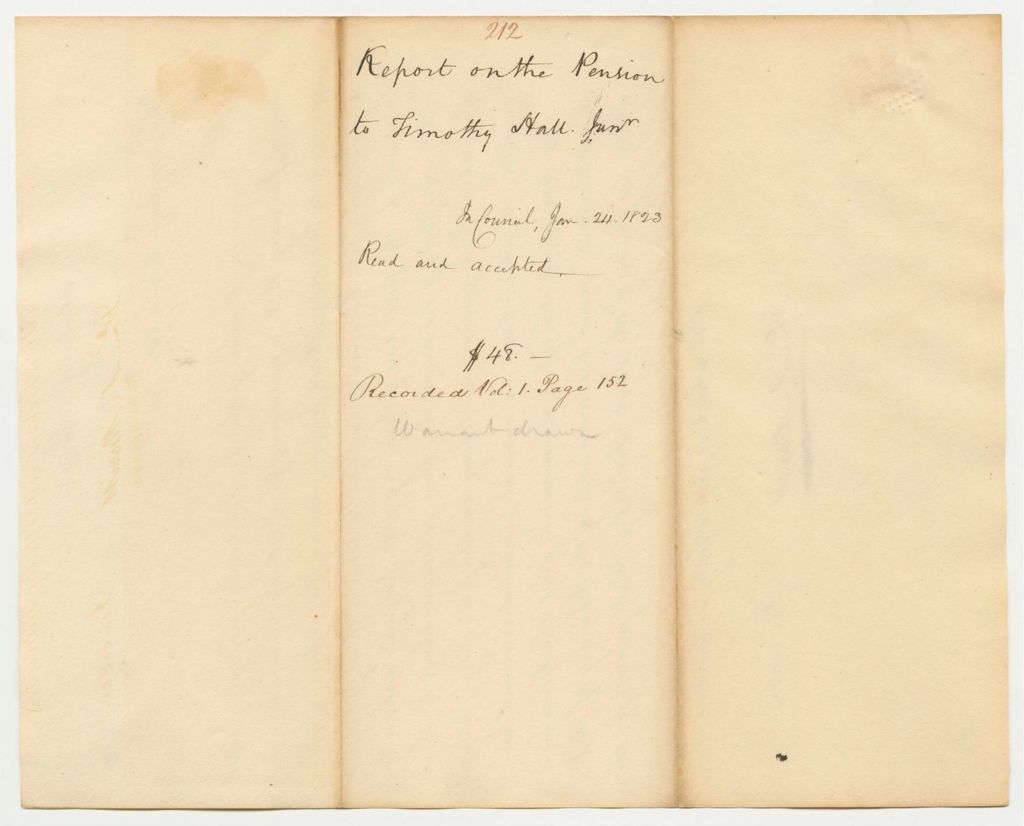 212
Report on the Pension
to Timothy Hall. Junr
In Council, Jan. 24. 1823
Read and accepted.
$48. —
Recorded Vol: 1. Page 152
Warrant drawn